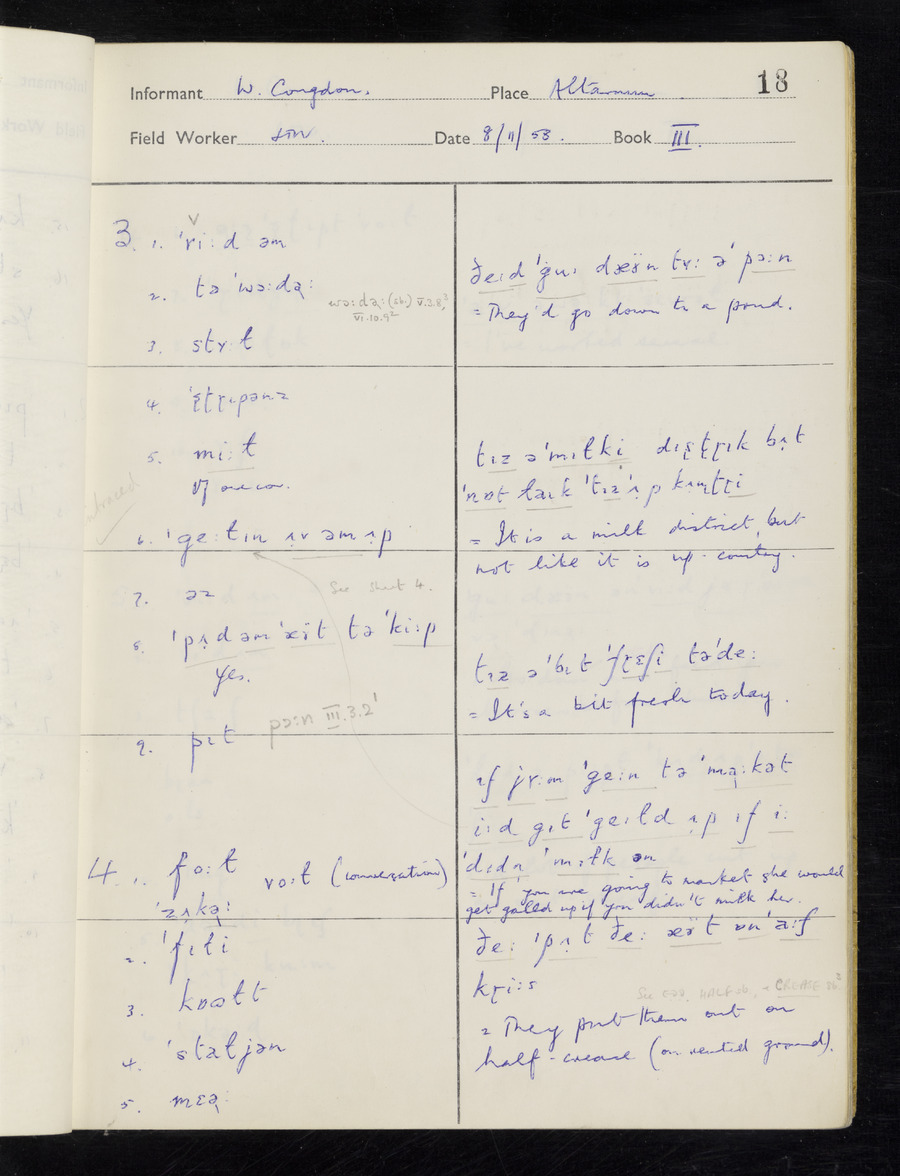 18
Informant W. Congdon. Place Altarnun
Field Worker Date 8/11/53. Book III.
3. 1. ˈriːd əm
2. tə ˈwəːdə̣ː
wəːdə̣ː (sb.) V.3.8,³
VI.10.9²
3. stʏːt
4. ˈʂʈɽɪpənz
5. miːt
of one cow.
6. ˈgeːtɪn ʌv əm ʌp
See sheet 4.
7. əz
8. ˈpʌd əm ˈæʏ̈t tə ˈkiːp
Yes.
9. pɪt
pəːn III.3.2¹
4. 1. foːt voːt (conversation)
ˈzʌkəː
2. ˈfɪli
3. kɒəɫt
4. ˈstaɫjən
5. mɛəː
ðeːd ˈguː dæʏ̈n tʏː ə ˈpəːn
= They'd go down to a pound.
tɪz ə ˈmɪɫki dɪʂʈɽɪk bʌt
ˈnɒt laɪk ˈtɪz ˈʌp kʌɳʈɽi
= It is a milk district, but
not like it is up-country.
tɪz ə ˈbɪt ˈfɽɛʃi təˈdeː
= It's a bit fresh today.
ɪf jʏːm ˈgeːn tə ˈmaːkət
iːd gɪt ˈgeːld ʌp ɪf iː
ˈdɪdn ˈmɪɫk ən
= If you are going to market she would
get galled up if you didn't milk her.
ðeː ˈpʌt ðeː æʏ̈t ɒn ˈaːf
kɽiːs
See EDD. HALF sb., & CREASE sb.²
= They put them out on
half-crease (on rented ground).